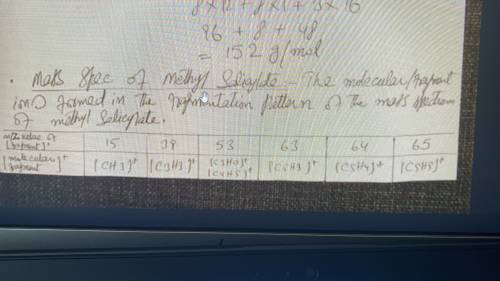 8x12 + 8x1 + 3x16
96 + 8 + 48
= 152 g/mol
. Mass Spec of Methyl Salicylate - The molecular/fragment
ion formed in the fragmentation pattern of the mass spectrum
of methyl Salicylate.
m/z value of [fragment]+ 15 39 53 63 64 65
[molecular fragment]+ [CH3]+ [C3H3]+ [C3HO]+ [C4H5]+ [C5H3]+ [C5H4]+ [C5H5]+